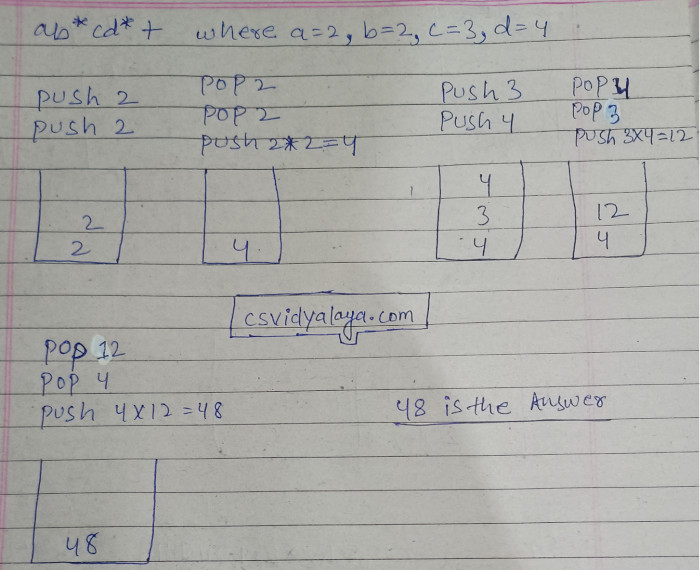 ab*cd*+ where a=2, b=2, c=3, d=4
push 2
push 2
POP 2
POP 2
push 2*2=4
Push 3
Push 4
POP 4
POP 3
Push 3x4=12
2
2
4
4
3
4
12
4
csvidyalaya.com
POP 12
POP 4
push 4x12=48
48 is the Answer
48